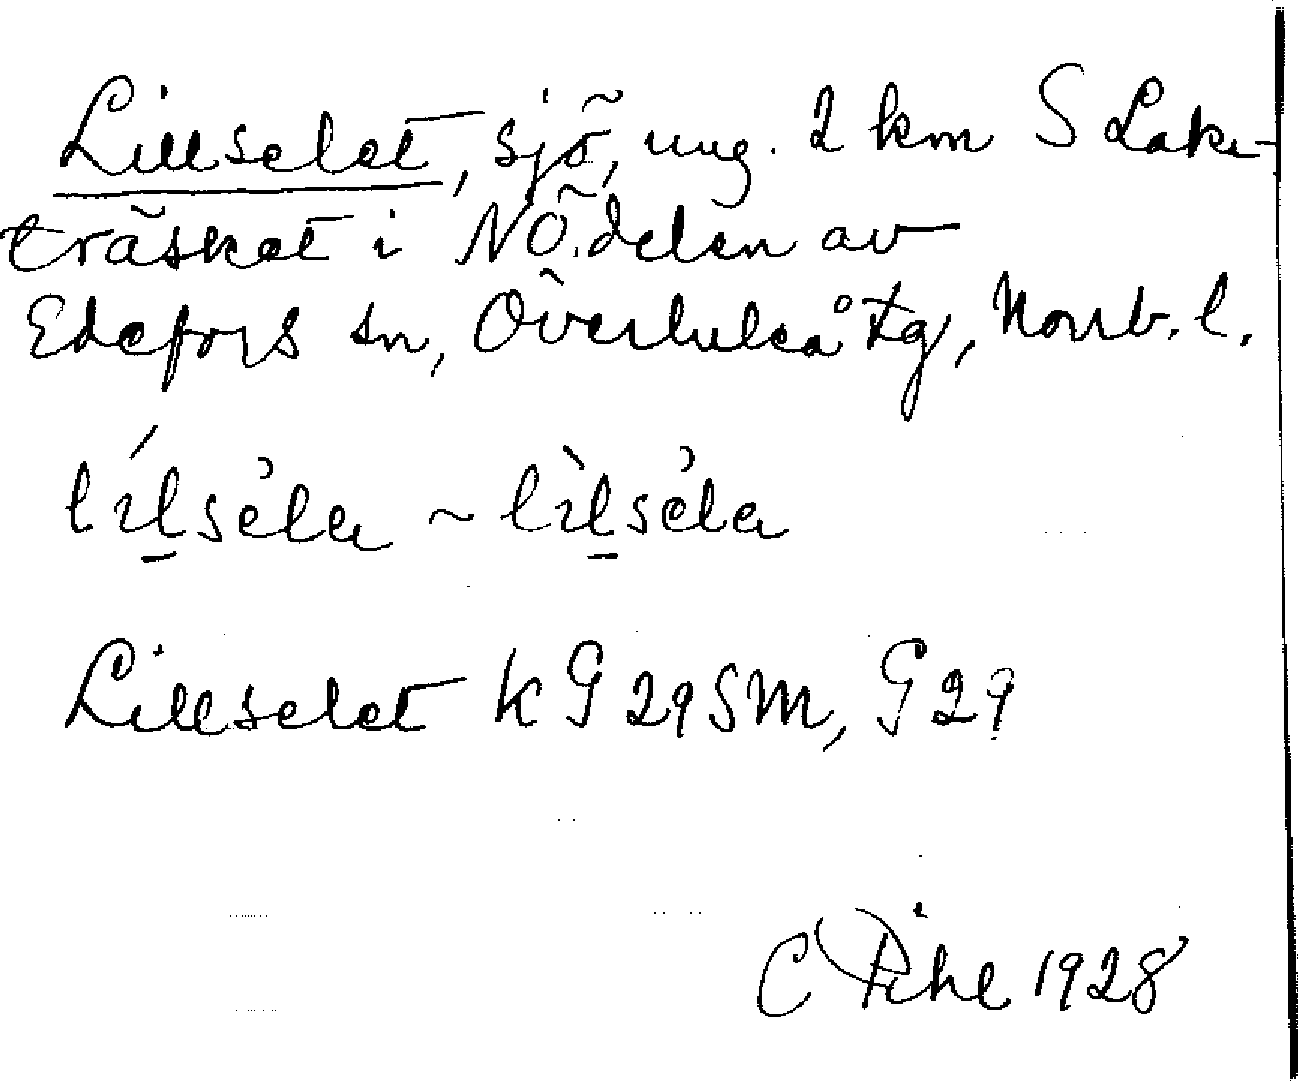 Lillselet, sjö, ung. 2 km S Lake-
träsket i NÖ.delen av
Edefors sn, Överluleå tg, Norrb. l.
lílsela ~ lìlsela
Lillselet k G 29 SM, G 29
C Pihl 1928